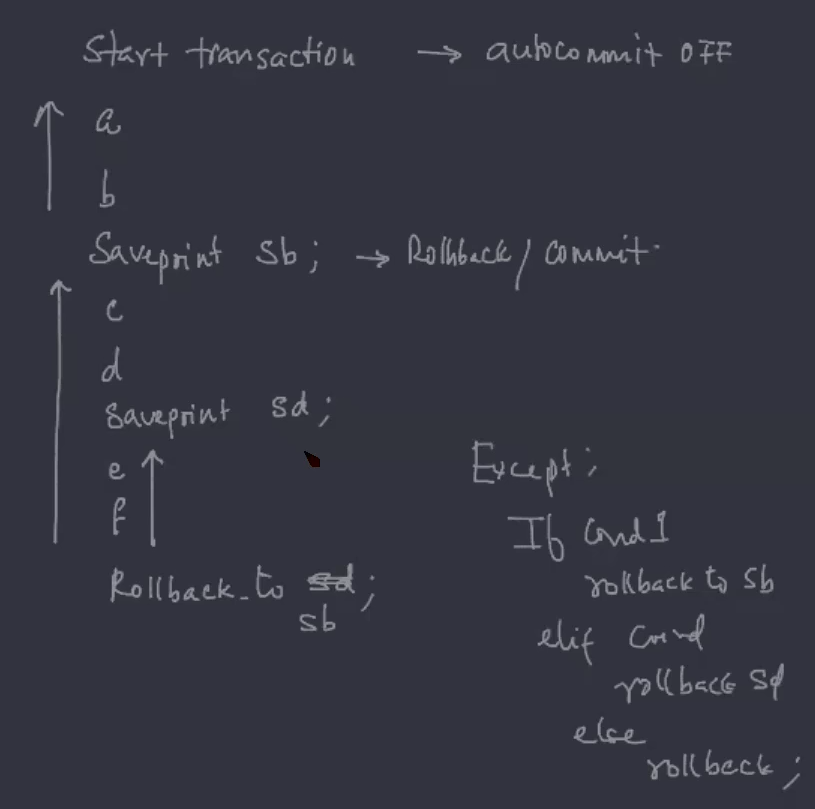 Start transaction → autocommit OFF
a
b
Saveprint sb; → Rollback / commit.
c
d
Saveprint sd;
e
f
Rollback_to sd;
sb
Except;
If Cond 1
rollback to sb
elif Cond
rollback sd
else
rollback;